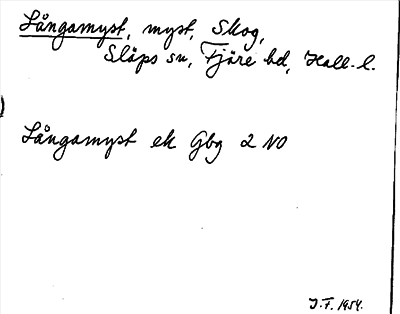 Långamyst, myst, Skog,
Släps sn, Fjäre hd, Hall. l.
Långamyst ek Gbg 2 NO
J. F. 1954.